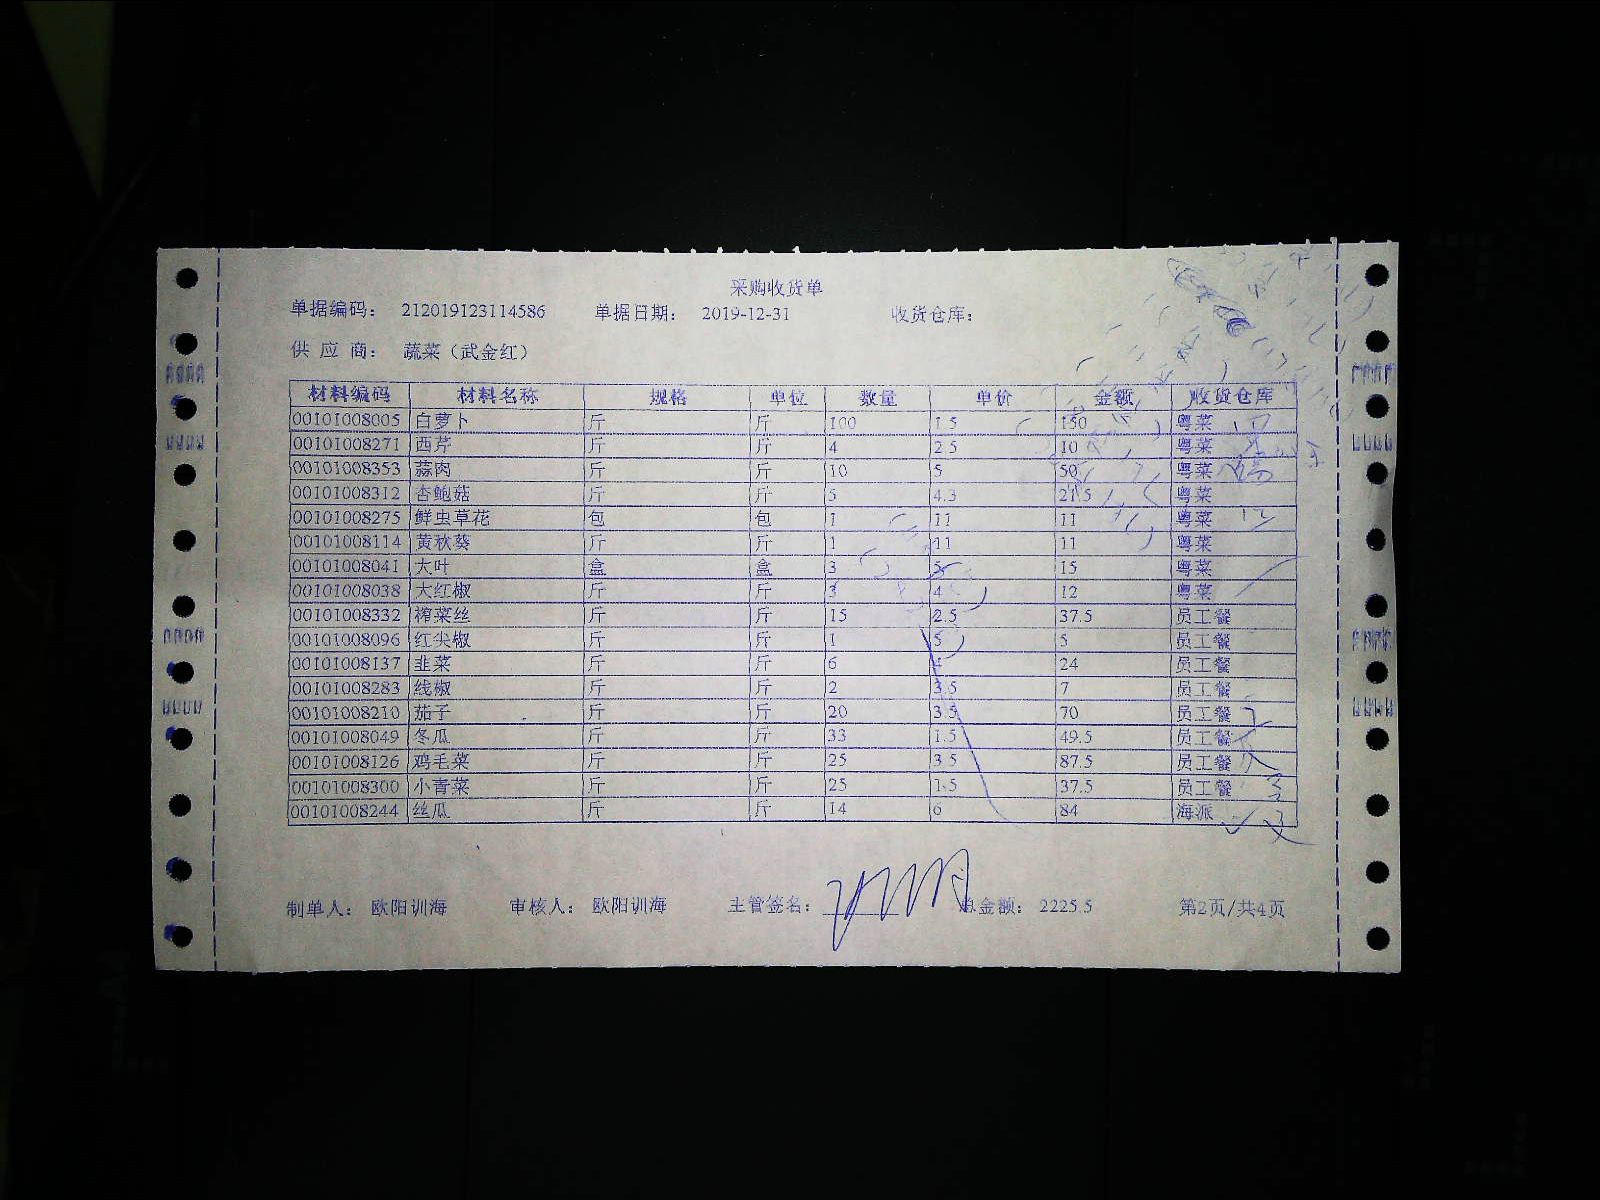 采购收货单
单据编码： 212019123114586 单据日期： 2019-12-31 收货仓库：
供 应 商： 蔬菜（武金红）
材料编码 材料名称 规格 单位 数量 单价 金额 收货仓库
00101008005 白萝卜 斤 斤 100 1.5 150 粤菜
00101008271 西芹 斤 斤 4 2.5 10 粤菜
00101008353 蒜肉 斤 斤 10 5 50 粤菜
00101008312 杏鲍菇 斤 斤 5 4.3 21.5 粤菜
00101008275 鲜虫草花 包 包 1 11 11 粤菜
00101008114 黄秋葵 斤 斤 1 11 11 粤菜
00101008041 大叶 盒 盒 3 5 15 粤菜
00101008038 大红椒 斤 斤 3 4 12 粤菜
00101008332 榨菜丝 斤 斤 15 2.5 37.5 员工餐
00101008096 红尖椒 斤 斤 1 5 5 员工餐
00101008137 韭菜 斤 斤 6 4 24 员工餐
00101008283 线椒 斤 斤 2 3.5 7 员工餐
00101008210 茄子 斤 斤 20 3.5 70 员工餐
00101008049 冬瓜 斤 斤 33 1.5 49.5 员工餐
00101008126 鸡毛菜 斤 斤 25 3.5 87.5 员工餐
00101008300 小青菜 斤 斤 25 1.5 37.5 员工餐
00101008244 丝瓜 斤 斤 14 6 84 海派
制单人： 欧阳训海 审核人： 欧阳训海 主管签名： 总金额： 2225.5 第2页/共4页